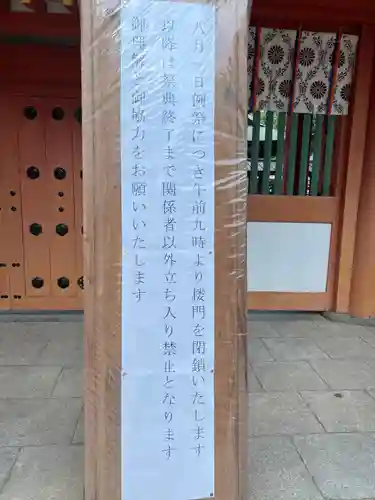 八月一日例祭につき午前九時より楼門を閉鎖いたします
以降は祭典終了まで関係者以外立ち入り禁止となります
御理解と御協力をお願いいたします